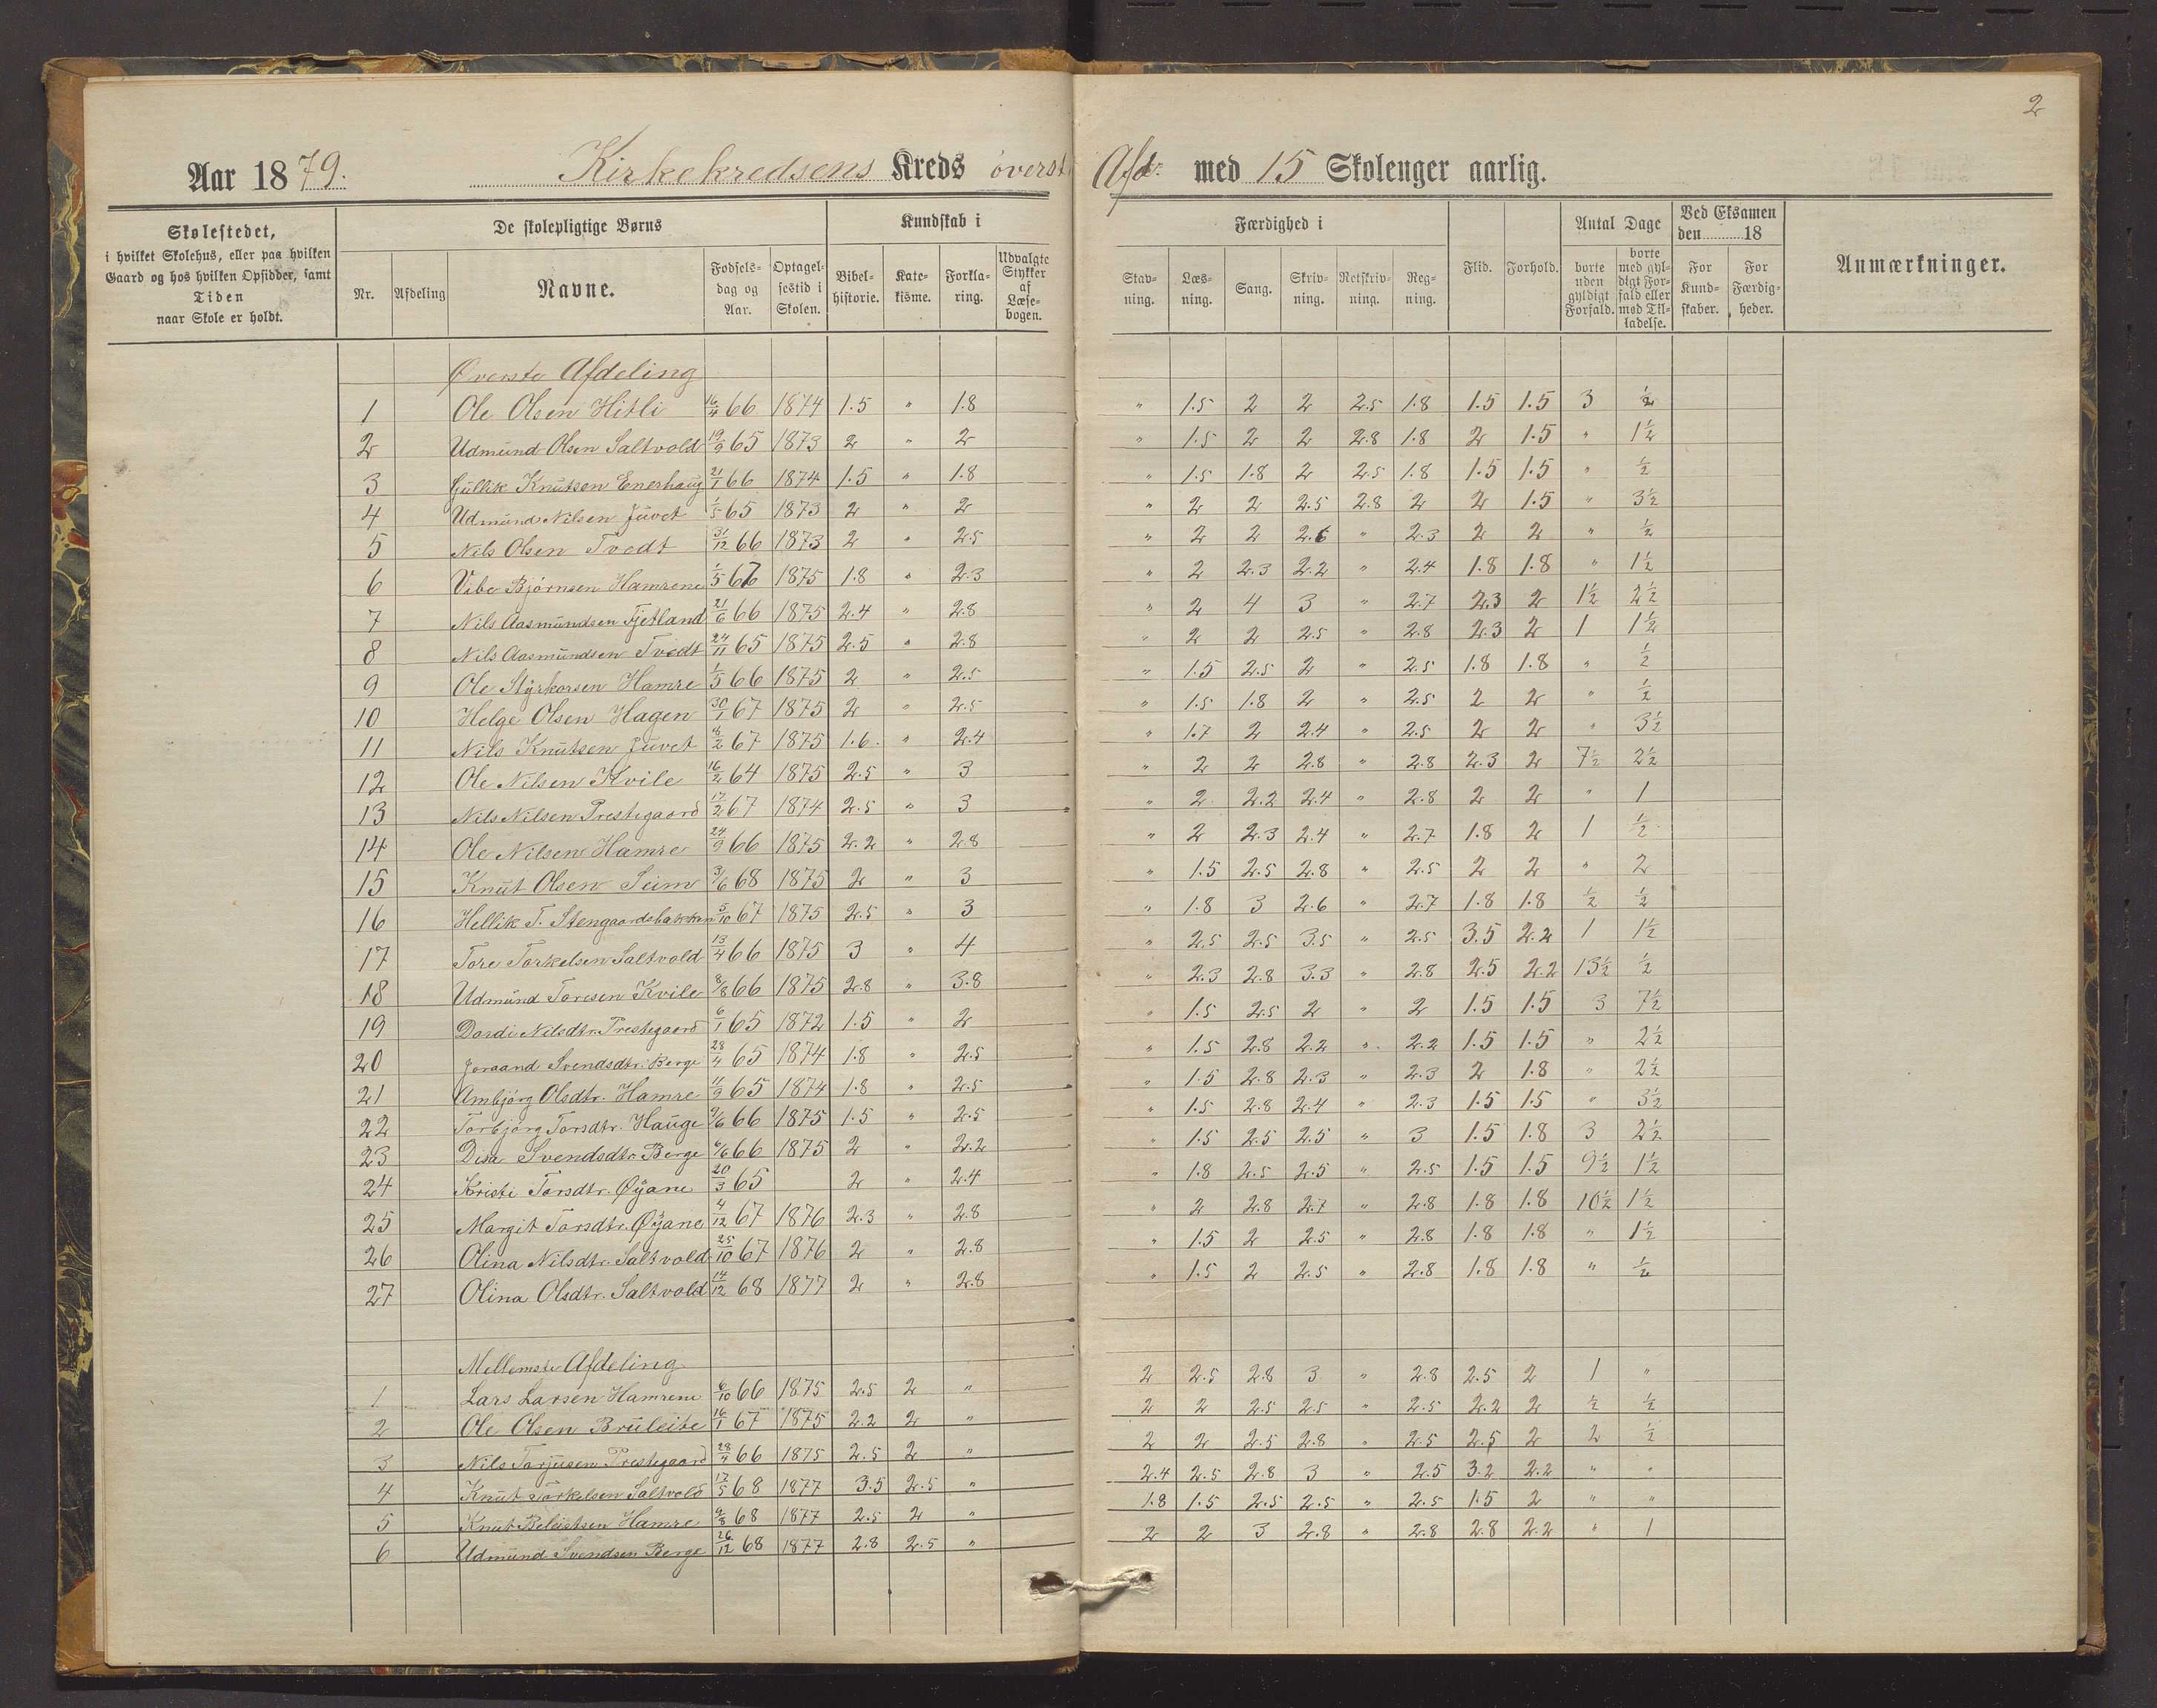 2
Aar 1879. Kirkekredsens Kreds øverste Afd. med 15 Skolenger aarlig.
Skolestedet, i hvilket Skolehus, eller paa hvilken Gaard og hos hvilken Opsidder, samt Tiden naar Skole er holdt.
De skolepligtige Børns
Nr. Afdeling Navne. Fødselsdag og Aar. Optagelsestid i Skolen.
Kundskab i
Bibelhistorie. Katekisme. Forklaring. Udvalgte Stykker af Læsebogen.
Færdighed i
Stavning. Læsning. Sang. Skrivning. Retskrivning. Regning.
Flid. Forhold.
Antal Dage
borte uden gyldigt Forfald. borte med gyldigt Forfald eller med Tilladelse.
Ved Eksamen den 18
For Kundskaber. For Færdigheder.
Anmærkninger.
Øverste Afdeling
1 Ole Olsen Hitli 16/4 66 1874 1.5 " 1.8 " 1.5 2 2 2.5 1.8 1.5 1.5 3 ½
2 Udmund Olsen Saltvold 19/9 65 1873 2 " 2 " 1.5 2 2 2.8 1.8 2 1.5 " 1½
3 Gullik Knutsen Enerhaug 21/1 66 1874 1.5 " 1.8 " 1.5 1.8 2 2.5 1.8 1.5 1.5 " ½
4 Udmund Nilsen Juvet 1/5 65 1873 2 " 2 " 2 2 2.5 2.8 2 2 1.5 " 3½
5 Nils Olsen Tvedt 31/12 66 1873 2 " 2.5 " 2 2 2.6 " 2.3 2 2 " ½
6 Vibe Bjørnsen Hamrene 1/5 67 1875 1.8 " 2.3 " 2 2.3 2.2 " 2.4 1.8 1.8 " 1½
7 Nils Aasmundsen Fjetland 21/6 66 1875 2.4 " 2.8 " 2 4 3 " 2.7 2.3 2 1½ 2½
8 Nils Aasmundsen Tvedt 24/11 65 1875 2.5 " 2.8 " 2 2 2.5 " 2.8 2.3 2 1 1½
9 Ole Styrkorsen Hamre 1/5 66 1875 2 " 2.5 " 1.5 2.5 2 " 2.5 1.8 1.8 " ½
10 Helge Olsen Hagen 30/1 67 1875 2 " 2.5 " 1.5 1.8 2 " 2.5 2 2 " ½
11 Nils Knutsen Juvet 8/2 67 1875 1.6 " 2.4 " 1.7 2 2.4 " 2.5 2 2 " 3½
12 Ole Nilsen Kvile 16/2 64 1875 2.5 " 3 " 2 2 2.8 " 2.8 2.3 2 7½ 2½
13 Nils Nilsen Prestegaard 17/2 67 1874 2.5 " 3 " 2 2.2 2.4 " 2.8 2 2 " 1
14 Ole Nilsen Hamre 24/9 66 1875 2.2 " 2.8 " 2 2.3 2.4 " 2.7 1.8 2 1 ½
15 Knut Olsen Seim 3/6 68 1875 2 " 3 " 1.5 2.5 2.8 " 2.5 2 2 " 2
16 Hellik T. Stengaardsbakken 5/10 67 1875 2.5 " 3 " 1.8 3 2.6 " 2.7 1.8 1.8 ½ ½
17 Tore Torkelsen Saltvold 13/4 66 1875 3 " 4 " 2.5 2.5 3.5 " 2.5 3.5 2.2 1 1½
18 Udmund Toresen Kvile 8/8 66 1875 2.8 " 3.8 " 2.3 2.8 3.3 " 2.8 2.5 2.2 13½ ½
19 Dordi Nilsdtr. Prestegaard 6/1 65 1872 1.5 " 2 " 1.5 2.5 2 " 2 1.5 1.5 3 7½
20 Joraand Svendsdtr. Berge 28/4 65 1874 1.8 " 2.5 " 1.5 2.8 2.2 " 2.2 1.5 1.5 " 2½
21 Ambjørg Olsdtr. Hamre 11/9 65 1874 1.8 " 2.5 " 1.5 2.8 2.3 " 2.3 2 1.8 " 2½
22 Torbjørg Torsdtr. Hauge 9/6 66 1875 1.5 " 2.5 " 1.5 2.8 2.4 " 2.3 1.5 1.5 " 3½
23 Disa Svendsdtr. Berge 6/6 66 1875 2 " 2.2 " 1.5 2.5 2.5 " 3 1.5 1.8 3 2½
24 Kristi Torsdtr. Øÿane 20/3 65 2 " 2.4 " 1.8 2.5 2.5 " 2.5 1.5 1.5 9½ 1½
25 Margit Torsdtr. Øÿane 4/12 67 1876 2.3 " 2.8 " 2 2.8 2.7 " 2.8 1.8 1.8 10½ 1½
26 Olina Nilsdtr. Saltvold 25/10 67 1876 2 " 2.8 " 1.5 2 2.5 " 2.8 1.8 1.8 " 1½
27 Olina Olsdtr. Saltvold 14/12 68 1877 2 " 2.8 " 1.5 2 2.5 " 2.8 1.8 1.8 " ½
Mellemste Afdeling
1 Lars Larsen Hamrene 6/10 66 1875 2.5 2 " 2 2.5 2.8 3 " 2.8 2.5 2 1 "
2 Ole Olsen Bruleite 16/1 67 1875 2.2 2 " 2 2 2.5 2.5 " 2.5 2.2 2 ½ ½
3 Nils Torjusen Prestegaard 28/4 66 1875 2.5 2 " 2 2 2.5 2.8 " 2.5 2.5 2 2 ½
4 Knut Torkelsen Saltvold 17/5 68 1877 3.5 2.5 " 2.4 2.5 2.8 3 " 2.5 3.2 2.2 " "
5 Knut Hamre 9/8 68 1877 2.5 2 " 1.8 1.5 2.5 2.5 " 2.5 1.5 2 " "
6 Udmund Svendsen Berge 26/12 68 1877 2.8 2.5 " 2 2 3 2.8 " 2.8 2.8 2.2 " 1